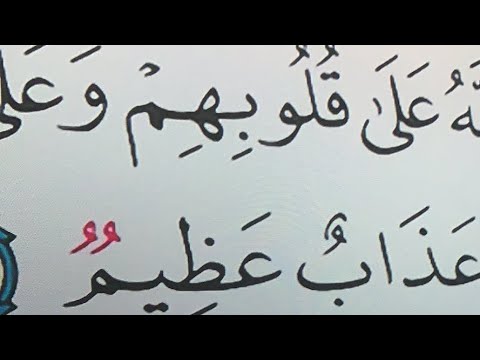 عَلَىٰ قُلُوبِهِمْ وَعَلَى
عَذَابٌ عَظِيمٌ